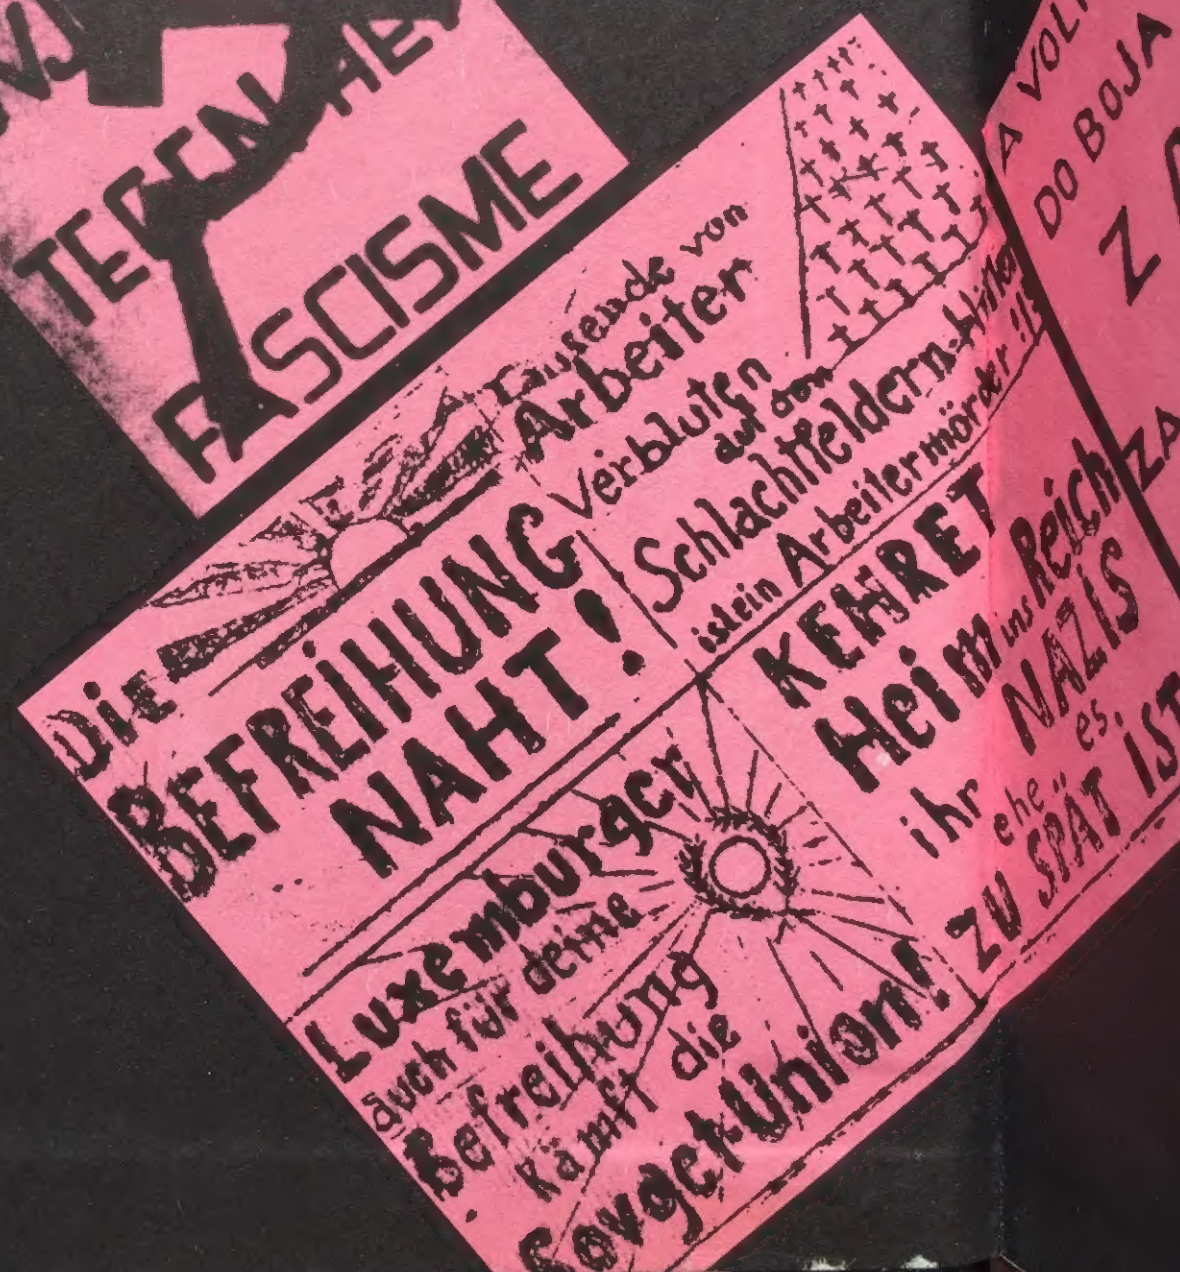 TEGEN HET
FASCISME
Die
BEFREIHUNG
NAHT!
Tausende von
Arbeiter
Verbluten
auf den
Schlachtfeldern-Hitler
ist ein Arbeitermörder!!
Luxemburger
auch für deine
Befreihung
Kämft die
Sovget-Union!
KEHRET
Heim ins Reich
ihr NAZIS
ehe es
ZU SPÄT IST
A VOL
DO BOJA
ZA